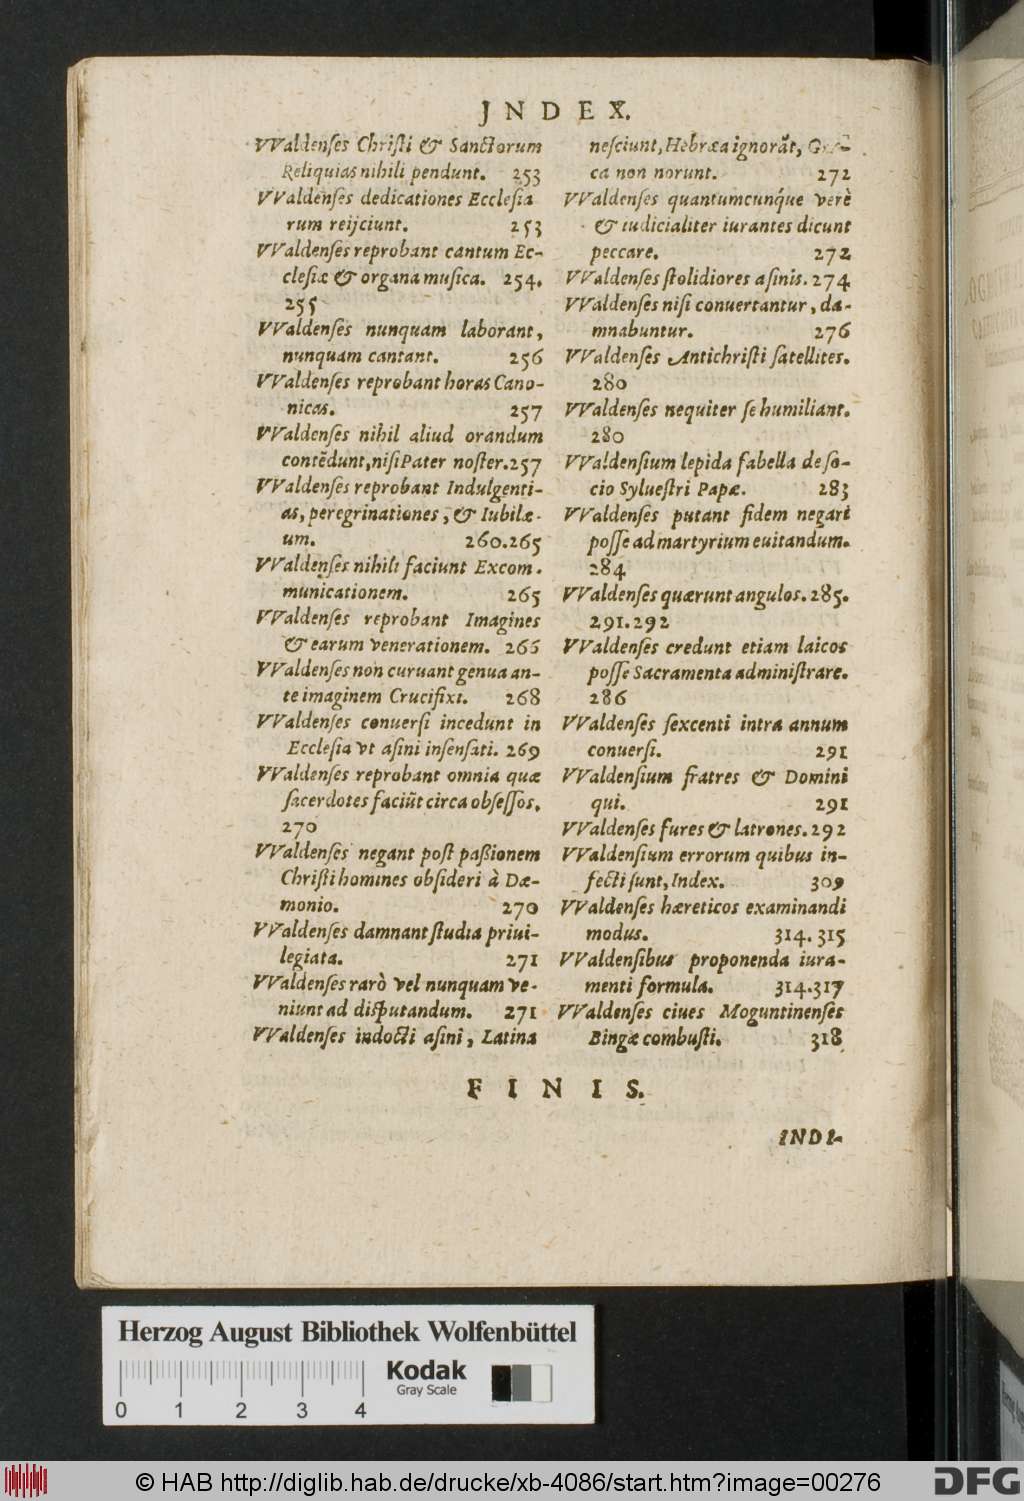 JNDEX.
VValdenses Christi & Sanctorum
Reliquias nihili pendunt. 253
VValdenses dedicationes Ecclesia
rum reijciunt. 253
VValdenses reprobant cantum Ec-
clesiæ & organa musica. 254.
255
VValdenses nunquam laborant,
nunquam cantant. 256
VValdenses reprobant horas Cano-
nicas. 257
VValdenses nihil aliud orandum
contẽdunt, nisi Pater noster. 257
VValdenses reprobant Indulgenti-
as, peregrinationes, & Iubilæ-
um. 260.265
VValdenses nihili faciunt Excom-
municationem. 265
VValdenses reprobant Imagines
& earum venerationem. 266
VValdenses non curuant genua an-
te imaginem Crucifixi. 268
VValdenses conuersi incedunt in
Ecclesia vt asini insensati. 269
VValdenses reprobant omnia quæ
sacerdotes faciũt circa obsessos.
270
VValdenses negant post paßionem
Christi homines obsideri à Dæ-
monio. 270
VValdenses damnant studia priui-
legiata. 271
VValdenses rarò vel nunquam ve-
niunt ad disputandum. 271
VValdenses indocti asini, Latina
nesciunt, Hebræa ignorãt,
ca non norunt. 272
VValdenses quantumcunq́ue verè
& iudicialiter iurantes dicunt
peccare. 272
VValdenses stolidiores asinis. 274
VValdenses nisi conuertantur, da-
mnabuntur. 276
VValdenses Antichristi satellites.
280
VValdenses nequiter se humiliant.
280
VValdensium lepida fabella de so-
cio Syluestri Papæ. 283
VValdenses putant fidem negari
posse ad martyrium euitandum.
284
VValdenses quærunt angulos. 285.
291.292
VValdenses credunt etiam laicos
posse Sacramenta administrare.
286
VValdenses sexcenti intra annum
conuersi. 291
VValdensium fratres & Domini
qui. 291
VValdenses fures & latrones. 292
VValdensium errorum quibus in-
fecti sunt, Index. 309
VValdenses hæreticos examinandi
modus. 314. 315
VValdensibus proponenda iura-
menti formula. 314.317
VValdenses ciues Moguntinenses
Bingæ combusti. 318
FINIS.
INDI-
Herzog August Bibliothek Wolfenbüttel
Kodak
Gray Scale
0 1 2 3 4
© HAB http://diglib.hab.de/drucke/xb-4086/start.htm?image=00276
DFG